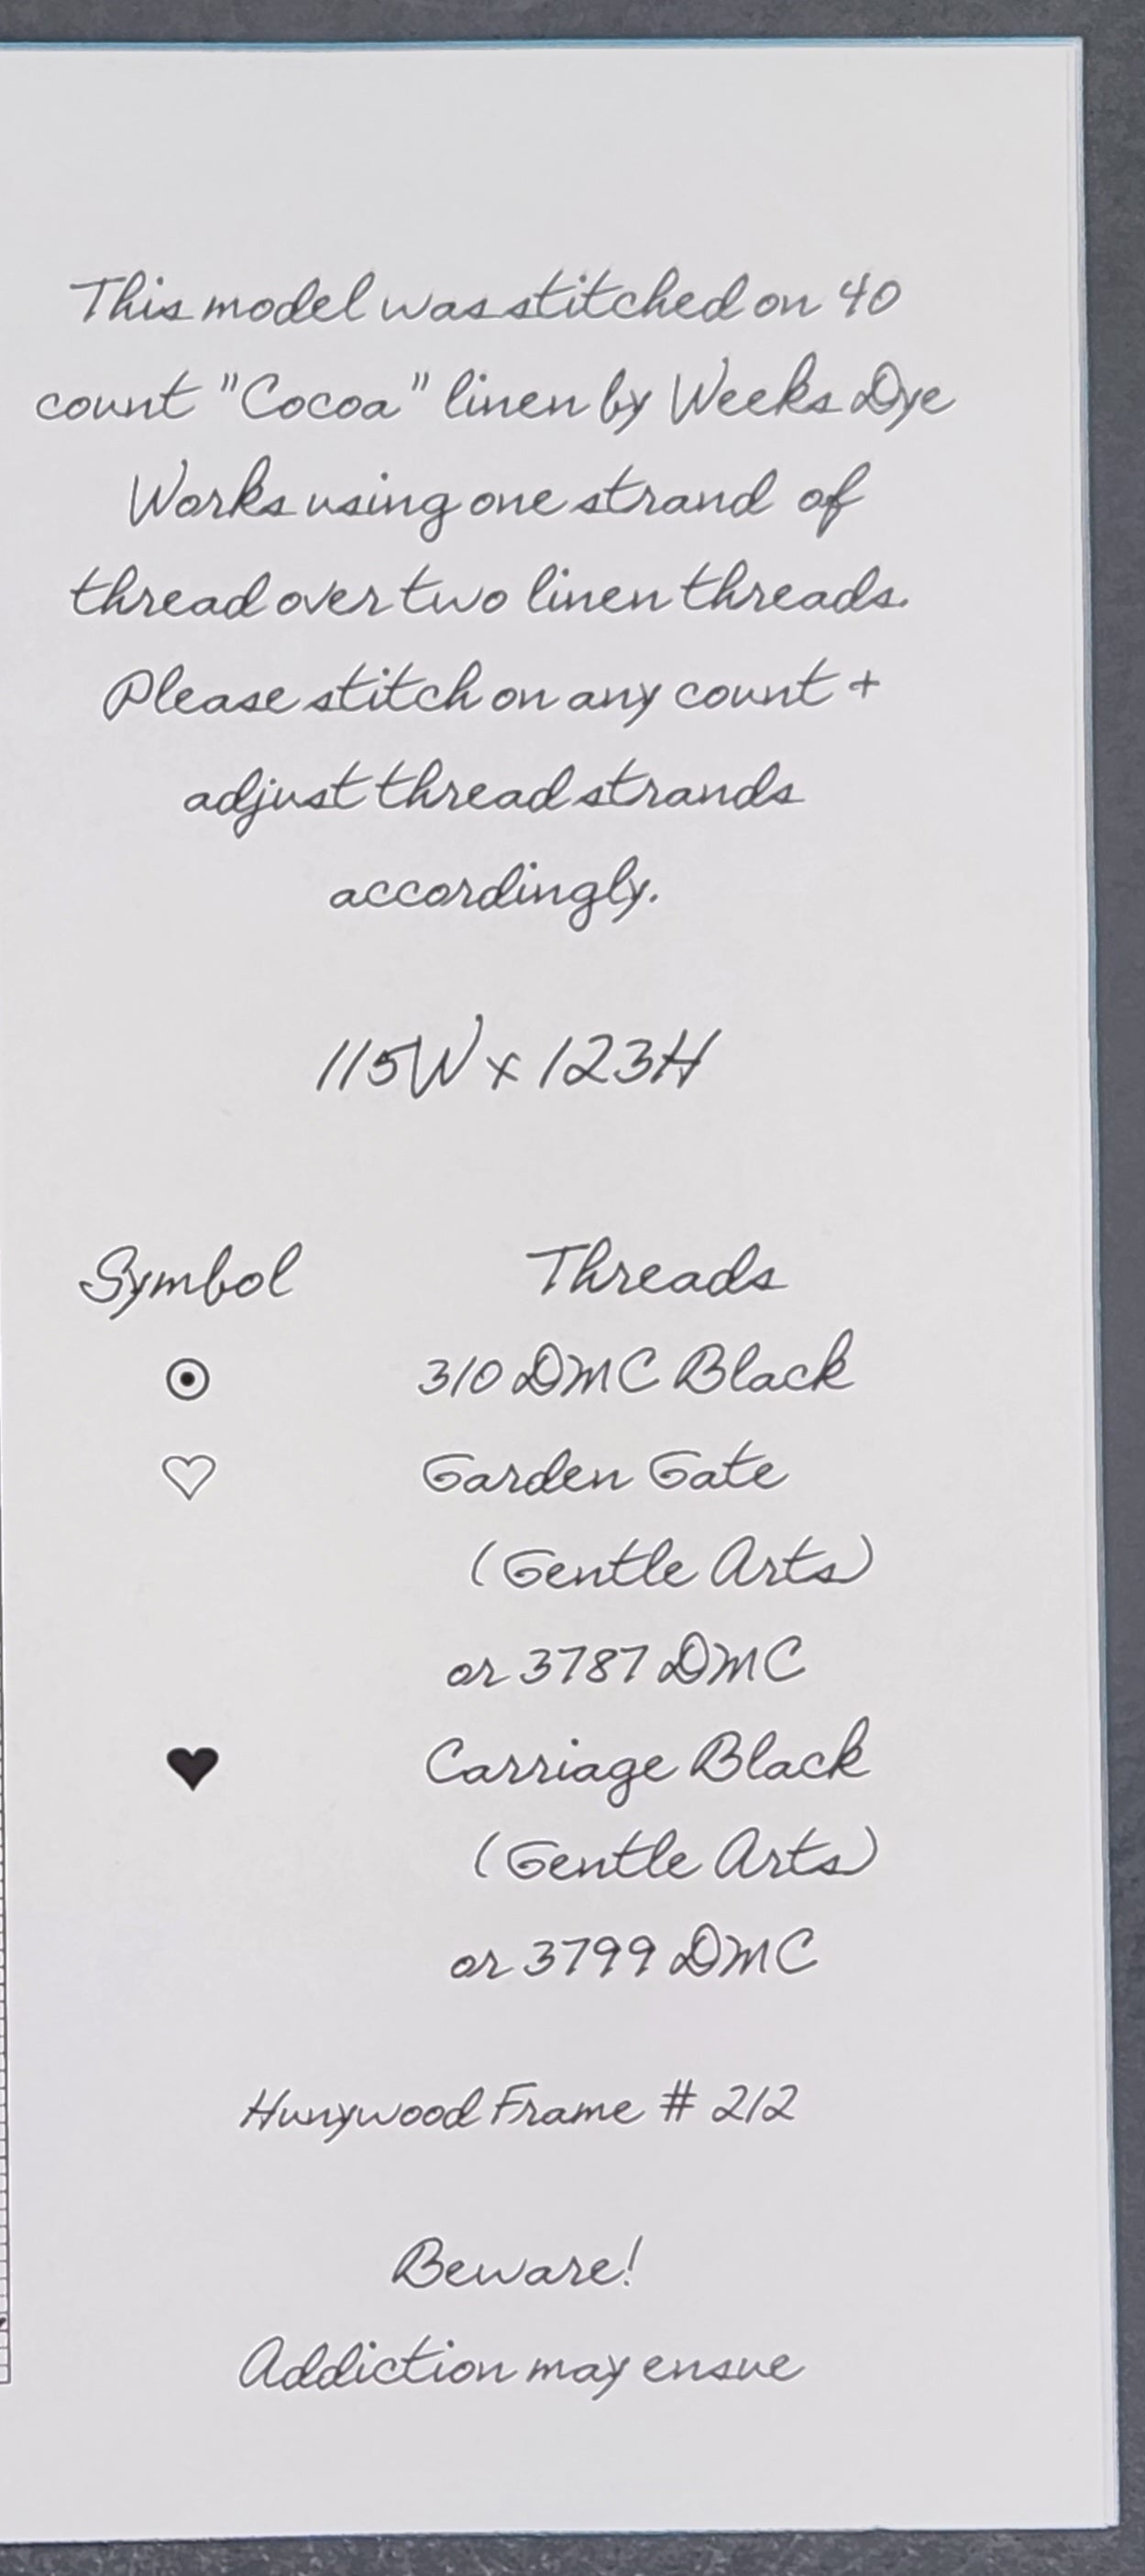 This model was stitched on 40
count "Cocoa" linen by Weeks Dye
Works using one strand of
thread over two linen threads.
Please stitch on any count +
adjust thread strands
accordingly.
115W x 123H
Symbol Threads
310 DMC Black
Garden Gate
(Gentle Arts)
or 3787 DMC
Carriage Black
(Gentle Arts)
or 3799 DMC
Hunywood Frame # 212
Beware!
Addiction may ensue